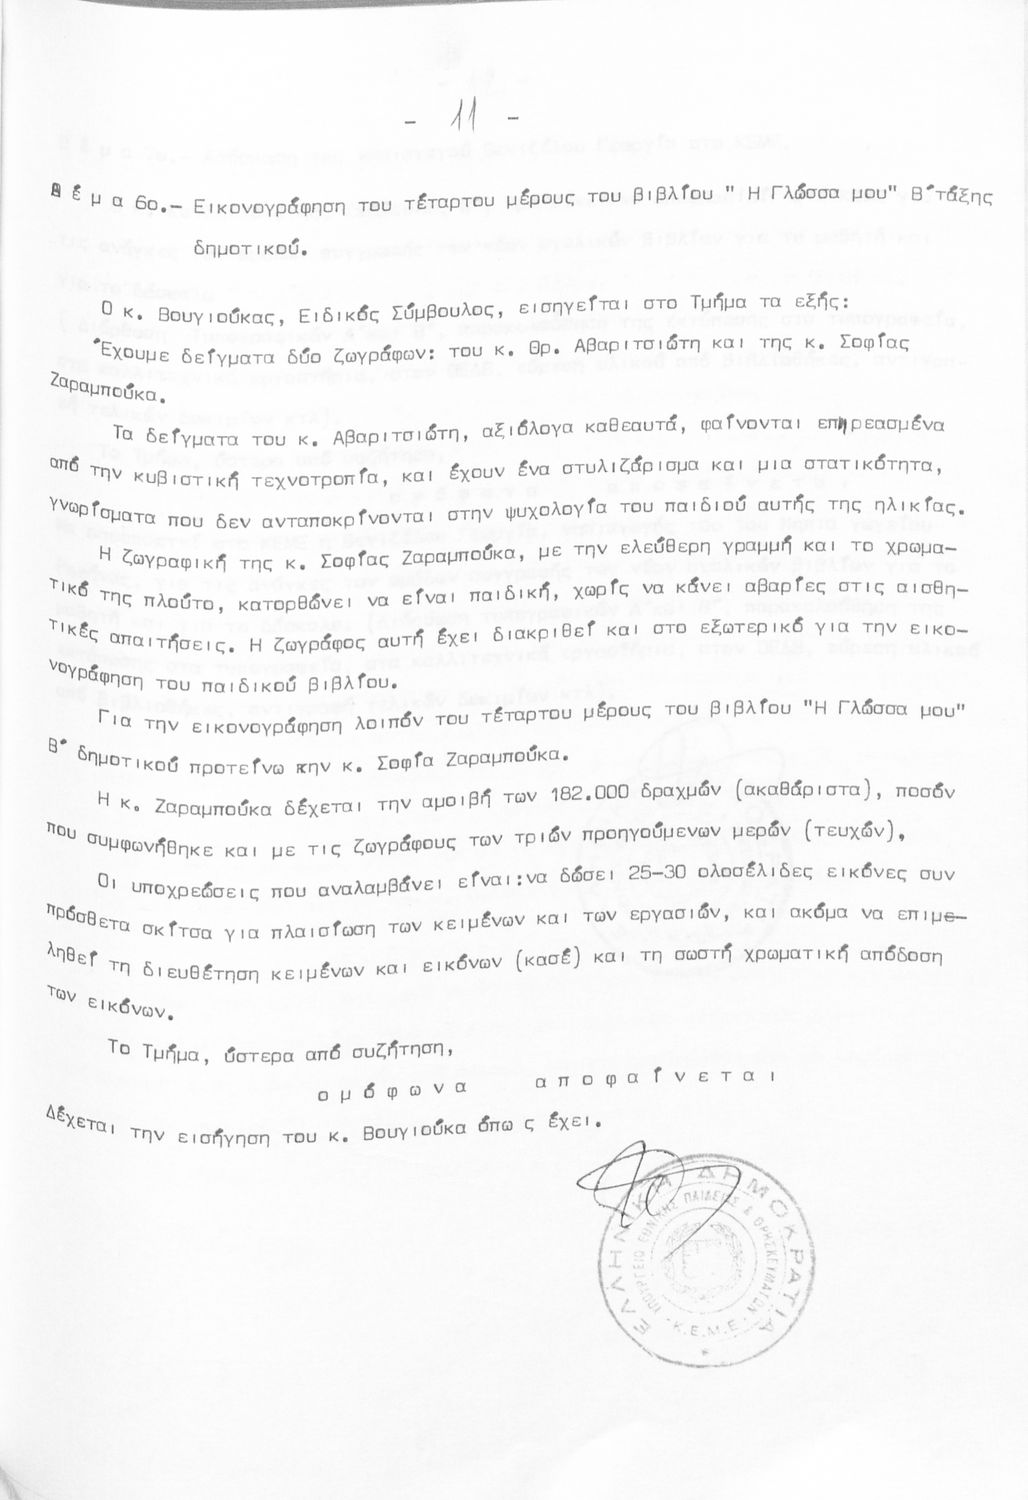 - 11 -
Θ έ μ α 6ο.- Εικονογράφηση του τέταρτου μέρους του βιβλίου " Η Γλώσσα μου" Β΄τάξης
δημοτικού.
Ο κ. Βουγιούκας, Ειδικός Σύμβουλος, εισηγείται στο Τμήμα τα εξής:
Έχουμε δείγματα δύο ζωγράφων: του κ. Θρ. Αβαριτσιώτη και της κ. Σοφίας
Ζαραμπούκα.
Τα δείγματα του κ. Αβαριτσιώτη, αξιόλογα καθεαυτά, φαίνονται επηρεασμένα
από την κυβιστική τεχνοτροπία, και έχουν ένα στυλιζάρισμα και μια στατικότητα,
γνωρίσματα που δεν ανταποκρίνονται στην ψυχολογία του παιδιού αυτής της ηλικίας.
Η ζωγραφική της κ. Σοφίας Ζαραμπούκα, με την ελεύθερη γραμμή και το χρωμα-
τικό της πλούτο, κατορθώνει να είναι παιδική, χωρίς να κάνει αβαρίες στις αισθη-
τικές απαιτήσεις. Η ζωγράφος αυτή έχει διακριθεί και στο εξωτερικό για την εικο-
νογράφηση του παιδικού βιβλίου.
Για την εικονογράφηση λοιπόν του τέταρτου μέρους του βιβλίου "Η Γλώσσα μου"
Β΄ δημοτικού προτείνω την κ. Σοφία Ζαραμπούκα.
Η κ. Ζαραμπούκα δέχεται την αμοιβή των 182.000 δραχμών (ακαθάριστα), ποσόν
που συμφωνήθηκε και με τις ζωγράφους των τριών προηγούμενων μερών (τευχών),
Οι υποχρεώσεις που αναλαμβάνει είναι:να δώσει 25-30 ολοσέλιδες εικόνες συν
πρόσθετα σκίτσα για πλαισίωση των κειμένων και των εργασιών, και ακόμα να επιμε-
ληθεί τη διευθέτηση κειμένων και εικόνων (κασέ) και τη σωστή χρωματική απόδοση
των εικόνων.
Το Τμήμα, ύστερα από συζήτηση,
ο μ ό φ ω ν α   α π ο φ α ί ν ε τ α ι
Δέχεται την εισήγηση του κ. Βουγιούκα όπω ς έχει.
ΕΛΛΗΝΙΚΗ ΔΗΜΟΚΡΑΤΙΑ
ΥΠΟΥΡΓΕΙΟ ΕΘΝΙΚΗΣ ΠΑΙΔΕΙΑΣ & ΘΡΗΣΚΕΥΜΑΤΩΝ
Κ.Ε.Μ.Ε.